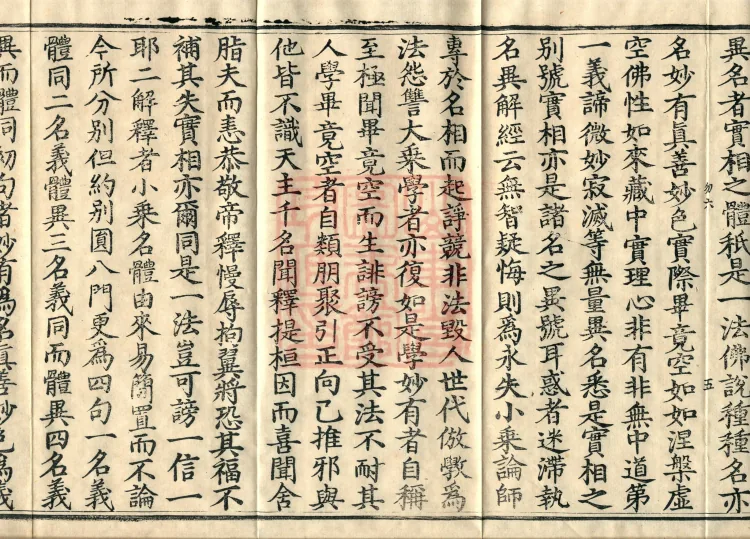 異名者實相之體秖是一法佛說種種名亦
五
名妙有真善妙色實際畢竟空如如涅槃虛
空佛性如來藏中實理心非有非無中道第
一義諦微妙寂滅等無量異名悉是實相之
別號實相亦是諸名之異號耳惑者迷滯執
名異解經云無智疑悔則為永失小乘論師
專於名相而起諍競非法毀人世代倣斆為
法怨讐大乘學者亦復如是學妙有者自稱
至極聞畢竟空而生誹謗不受其法不耐其
人學畢竟空者自類朋聚引正向己推邪與
他皆不識天主千名聞釋提桓因而喜聞舍
脂夫而恚恭敬帝釋慢辱拘翼將恐其福不
補其失實相亦爾同是一法豈可謗一信一
耶二解釋者小乘名體由來易簡置而不論
今所分別但約別圓八門更為四句一名義
體同二名義體異三名義同而體異四名義
異而體同初句者妙有為名真善妙色為義